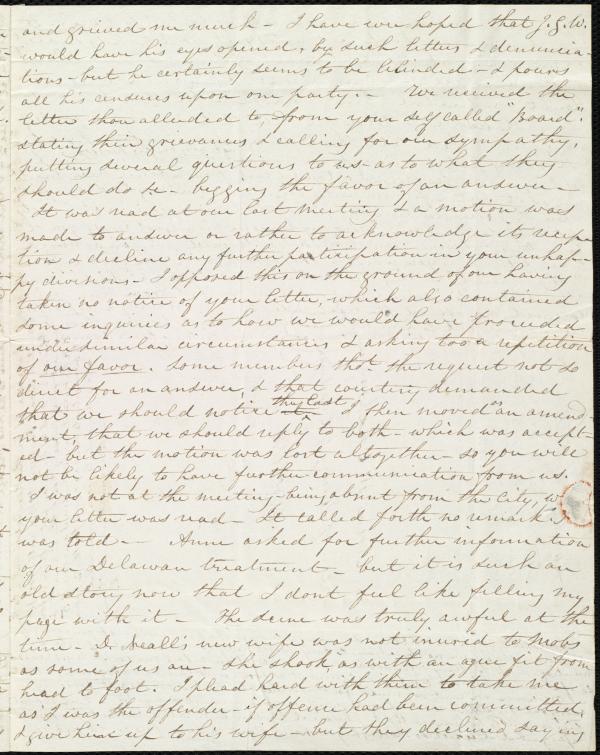 and grieved me much - I have ever hoped that J. G. W.
would have his eyes opened, by such letters & denuncia-
tions - but he certainly seems to be blinded - & pours
all his censures upon our party. - We received the
letter thou alluded to, from your self called "Board".
stating their grievances & calling for our sympathy,
putting several questions to us - as to what they
should do &c - begging the favor of an answer -
It was read at our last meeting & a motion was
made to answer or rather to acknowledge its recep-
tion & decline any further participation in your unhap-
py divisions - I opposed this on the ground of our having
taken no notice of your letter, which also contained
some inquiries as to how we would have proceeded
under similar circumstances & asking too a repetition
of our favor. Some members tho't the request not so
direct for an answer, & that courtesy demanded
that we should notice this last I then moved an amend-
ment, that we should reply to both - which was accept-
ed - but the motion was lost altogether - so you will
not be likely to have further communication from us.
I was not at the meeting - being absent from the City, w
your letter was read - It called forth no remark I
was told - Anne asked for further information
of our Delawan treatment - but it is such an
old story now that I dont feel like filling my
page with it - The scene was truly awful at the
time - Dr. Neall's new wife was not inured to mobs
as some of us are - she shook, as with an ague fit from
head to foot. I plead hard with them to take me
as I was the offender - if offence had been committed,
& give him up to his wife - but they declined saying